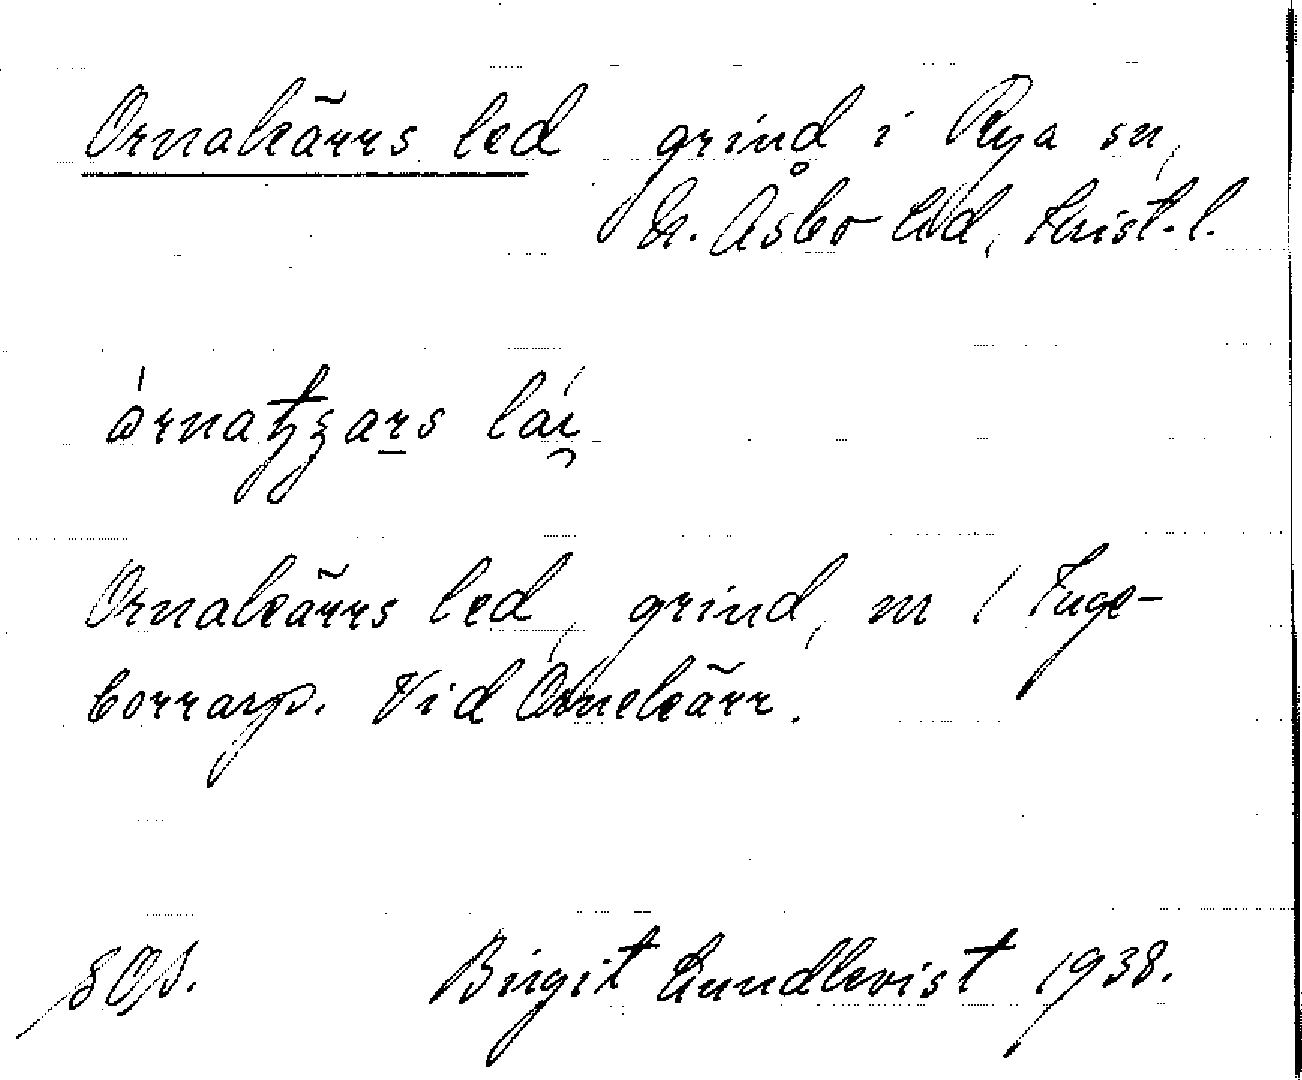 Ornakärrs led grind i Rya sn,
N. Åsbo hd, Krist. l.
Ornakärrs led, grind, m / Tuge-
borrarp. Vid Ornekärr.
Birgit Lundkvist 1938.